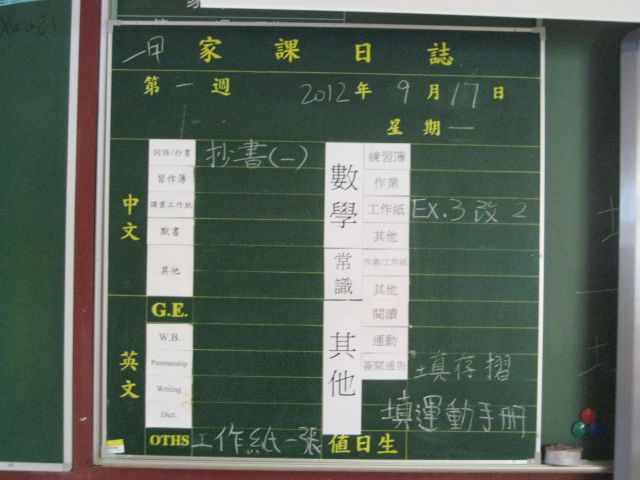 一甲 家課日誌
第一週 2012年9月17日
星期一
中文
詞語/抄書 抄書(一)
習作簿
課業工作紙
默書
其他
英文
G.E.
W.B.
Penmanship
Writing
Dict.
OTHS 工作紙一張
數學
練習簿
作業
工作紙 EX.3 改 2
其他
常識
作業/工作紙
其他
其他
閱讀
運動
簽閱通告 填存摺
填運動手冊
值日生